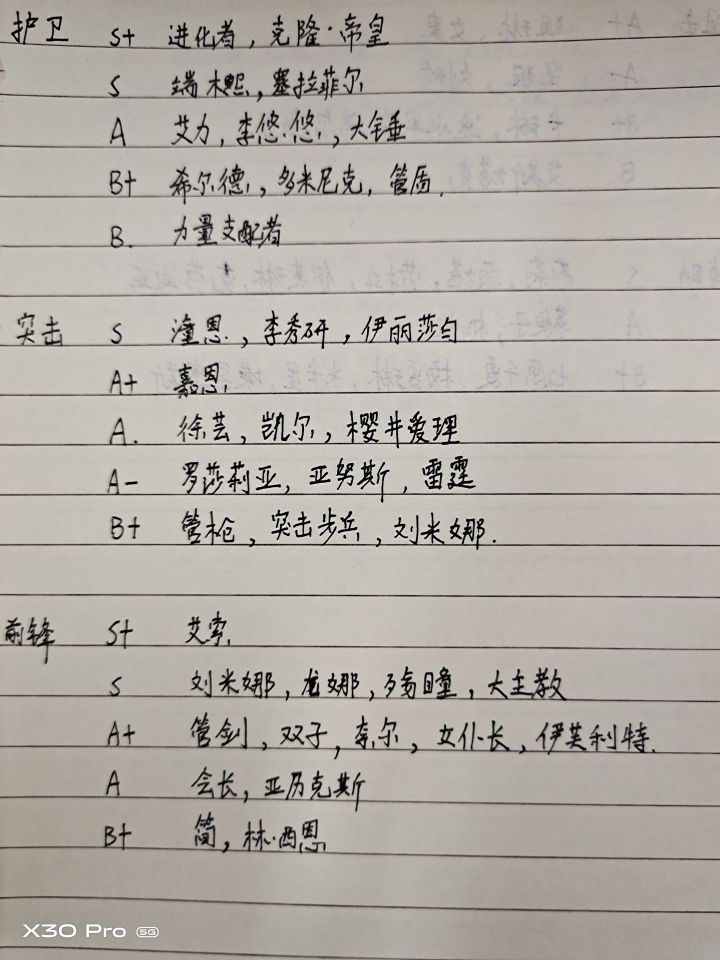 护卫 S+ 进化者，克隆·帝皇
S 端木熙，塞拉菲尔
A 艾力，李悠·悠，大锤
B+ 希尔德，多米尼克，管盾.
B. 力量支配者
突击 S 潼恩，李秀研，伊丽莎白
A+ 嘉恩
A. 徐芸，凯尔，樱井爱理
A- 罗莎莉亚，亚努斯，雷霆
B+ 管枪，突击步兵，刘米娜.
前锋 S+ 艾索
S 刘米娜，龙娜，殇瞳，大主教
A+ 管剑，双子，泰尔，女仆长，伊芙利特.
A 会长，亚历克斯
B+ 简，林·西恩
X30 Pro 5G